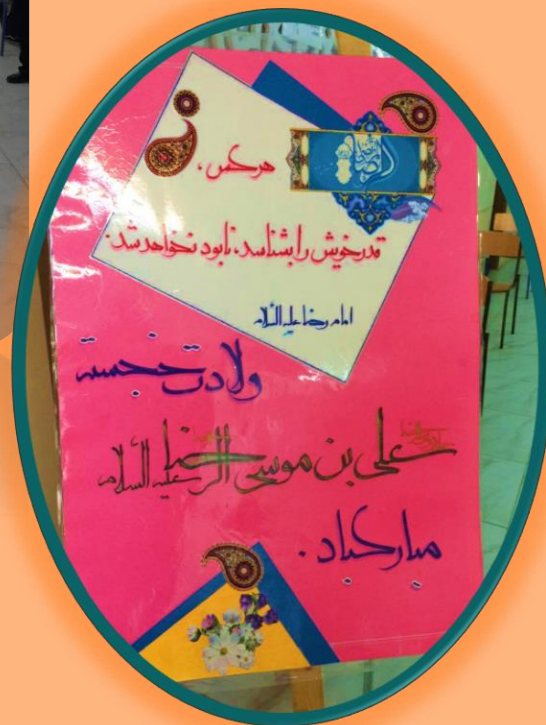 هرکس،
قدر خویش را بشناسد، نابود نخواهد شد.
امام رضا علیه السلام
ولادت خجسته
علی بن موسی الرضا علیه السلام
مبارکباد.